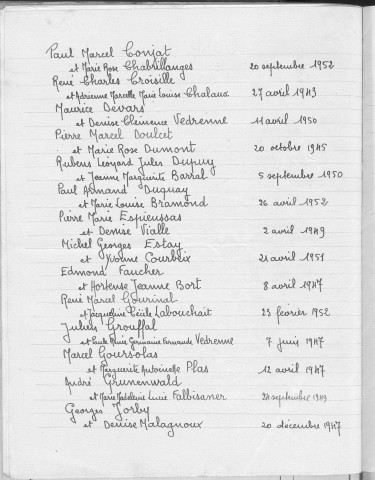 Paul Marcel Conjat
et Marie Rose Chabrillanges 20 septembre 1952
René Charles Croisille
et Adrienne Marcelle Marie Louise Chalaux 27 avril 1943
Maurice Devars
et Denise Clémence Vedrenne 11 avril 1950
Pierre Marcel Doulcet
et Marie Rose Dumont 20 octobre 1945
Rubens Léonard Jules Dupuy
et Jeanne Marguerite Barral 5 septembre 1950
Paul Armand Duguay
et Marie Louise Bramond 26 avril 1952
Pierre Marie Espieussas
et Denise Vialle 2 avril 1949
Michel Georges Estay
et Yvonne Courbeix 21 avril 1951
Edmond Faucher
et Hortense Jeanne Bort 8 avril 1947
René Marcel Gourinal
et Jacqueline Cécile Labouchait 23 février 1952
Julien Grouffal
et Paule Germaine Fernande Vedrenne 7 juin 1947
Marcel Goursolas
et Marguerite Antoinette Plas 12 avril 1947
André Grunenwald
et Marie Madeleine Lucie Falbisaner 24 septembre 1949
Georges Jorby
et Denise Malagnoux 20 décembre 1947